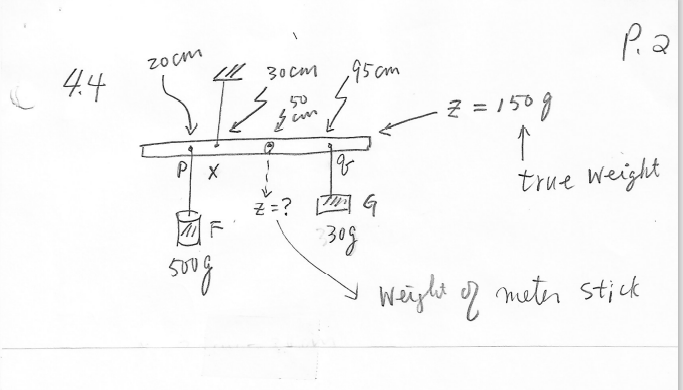 P.2
4.4
20cm
30cm
95cm
50
cm
z = 150g
true weight
P
x
q
z=?
F
G
500g
30g
Weight of meter stick